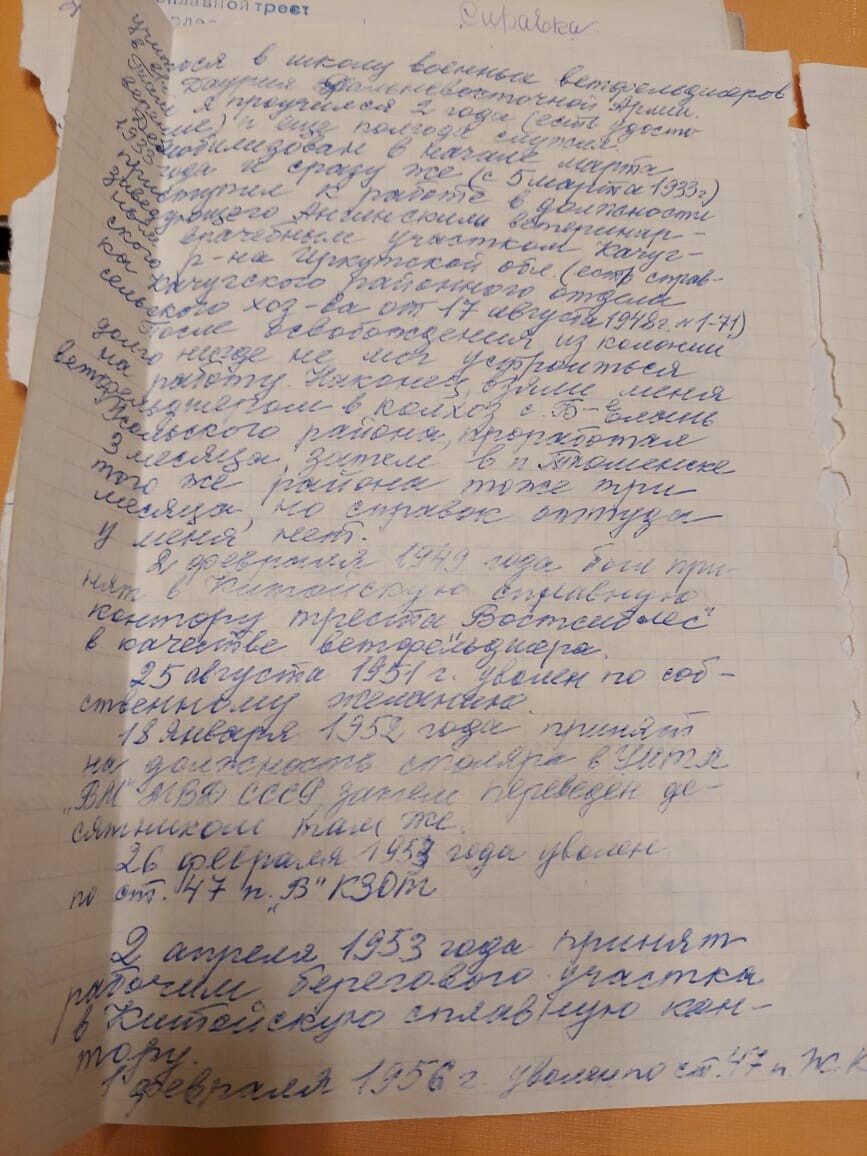 сплавной трест
Справка
в школу военных ветфельдшеров
Даурия Дальневосточной Армии.
я проучился 2 года (есть удосто
и еще полгода служил
в начале марта
и сразу же (с 5 марта 1933 г.)
1933
приступил к работе в должности
заведующего Ангинским ветеринар-
врачебным участком Качуг-
ского р-на Иркутской обл. (есть справ-
ка Качугского районного отдела
сельского хоз-ва от 17 августа 1948 г. № 1-71)
После освобождения из колонии
долго нигде не мог устроиться
на работу. Наконец, взяли меня
ветфельдшером в колхоз с. Б-Елань
Усольского района, проработал
3 месяца, затем в п. Тюменске
того же района тоже три
месяца, но справок оттуда
у меня нет.
2 февраля 1949 года был при-
нят в Китойскую сплавную
контору треста "Востсиблес"
в качестве ветфельдшера.
25 августа 1951 г. уволен по соб-
ственному желанию.
18 января 1952 года принят
на должность столяра в
МВД СССР, затем переведен де-
сятником там же.
26 февраля 1953 года уволен
по ст. 47 п. "В" КЗОТ
2 апреля 1953 года принят
рабочим берегового участка
в Китойскую сплавную кон-
тору.
1 февраля 1956 г. уволен по ст. 47 п. Ж. К